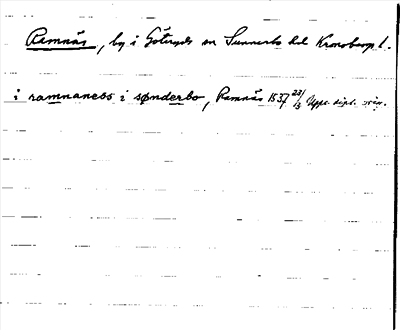 Ramnäs, by i Göteryds sn Sunnerbo hd Kronobergs l.
i ramnaness i sønderbo, Ramnäs 1537 23/3 Upps. dipl. orig.